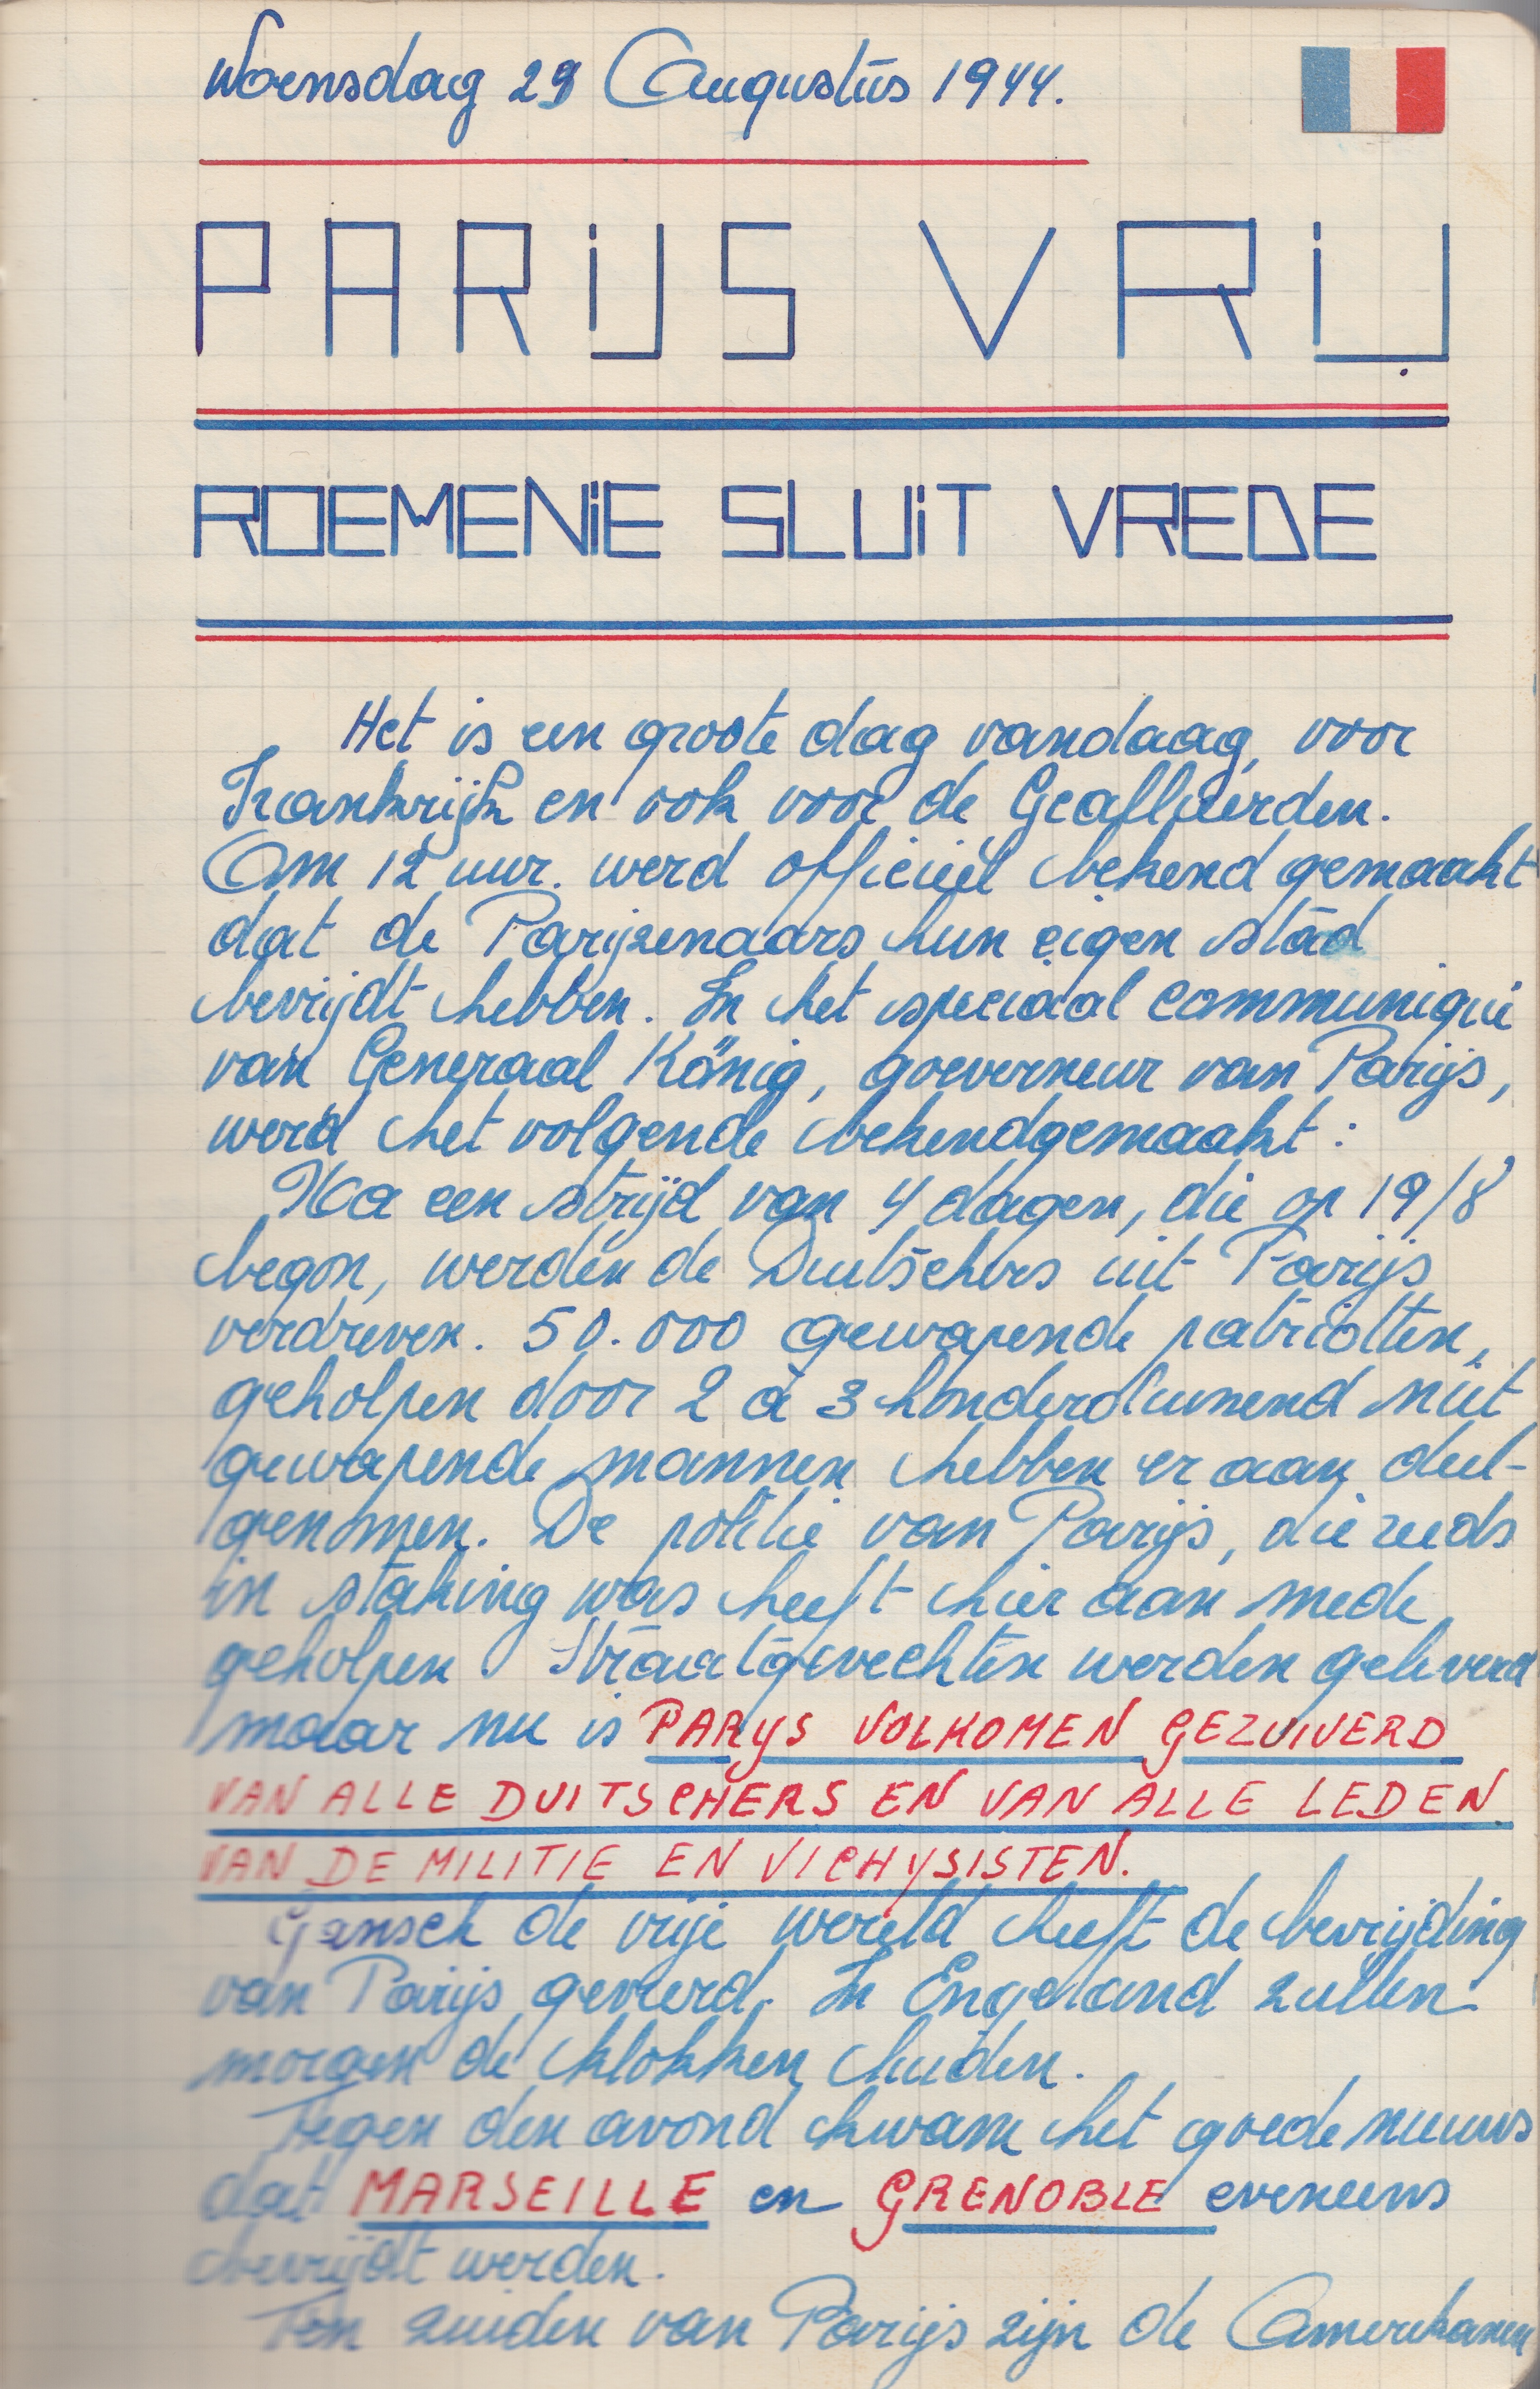 Woensdag 23 Augustus 1944.
PARIJS VRIJ
ROEMENIE SLUIT VREDE
Het is een groote dag vandaag, voor
Frankrijk en ook voor de Geallieerden.
Om 12 uur. werd officieël bekend gemaakt
dat de Parijzenaars hun eigen stad
bevrijdt hebben. In het speciaal communiqué
van Generaal König, goeverneur van Parijs,
werd het volgende bekendgemaakt:
Na een strijd van 4 dagen, die op 19/8
begon, werden de Duitschers uit Parijs
verdreven. 50.000 gewapende patriotten,
geholpen door 2 à 3 honderdduizend niet
gewapende mannen hebben er aan deel-
genomen. De politie van Parijs, die reeds
in staking was heeft hier aan mede
geholpen. Straatgevechten werden geleverd
maar nu is PARYS VOLKOMEN GEZUIVERD
VAN ALLE DUITSCHERS EN VAN ALLE LEDEN
VAN DE MILITIE EN VICHYSISTEN.
Gansch de vrije wereld heeft de bevrijding
van Parijs gevierd. In Engeland zullen
morgen de klokken luiden.
Tegen den avond kwam het goede nieuws
dat MARSEILLE en GRENOBLE eveneens
bevrijdt werden.
Ten zuiden van Parijs zijn de Amerikanen